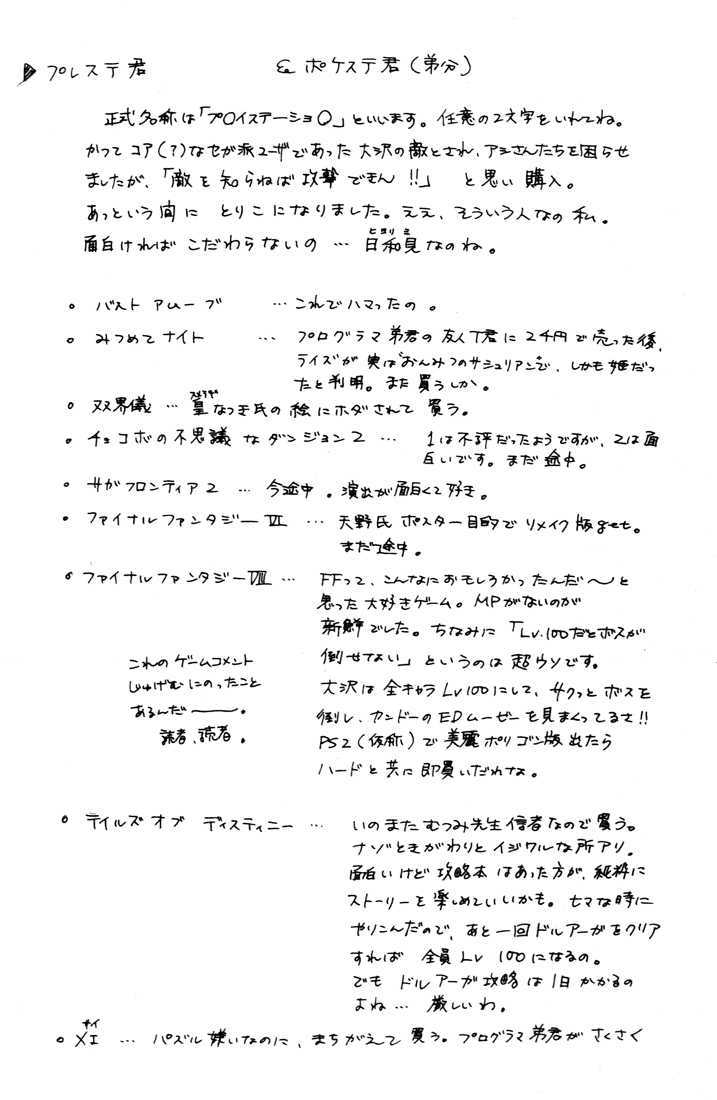 プレステ君 & ポケステ君(弟分)
正式名称は「プロイステーショ○」といいます。任意の2文字をいれてね。
かつてコア(?)なセガ派ユーザであった大沢の敵とされ、アシさんたちを困らせ
ましたが、「敵を知らねば攻撃でもん!!」と思い購入。
あっという間に とりこになりました。ええ、そういう人なの私。
面白ければこだわらないの … 日和見なのね。
ヒヨリミ
。バスト アムーブ … これでハマったの。
。みつめてナイト … プログラマ弟君の友人T君に2千円で売った後、
ライズが実は"おんみつのサシュリアン"で、しかも姫だっ
たと判明。また買うしか。
。双界儀 … 皇なつき氏の絵にホダされて買う。
スメラギ
。チョコボの不思議なダンジョン2 … 1は不評だったようですが、2は面
白いです。まだ途中。
。サガフロンティア2 … 今途中。演出が面白くて好き。
。ファイナルファンタジーⅥ … 天野氏ポスター目的でリメイク版get。
まだ途中。
。ファイナルファンタジーⅧ … FFって、こんなにおもしろかったんだ〜と
思った大好きゲーム。MPがないのが
新鮮でした。ちなみに「Lv.100だとボスが
倒せない」というのは超ウソです。
大沢は全キャラLv100にして、サクっとボスを
倒し、カンドーのEDムービーを見まくってるさ!!
PS2(仮称)で美麗ポリゴン版出たら
ハードと共に即買いだれな。
これのゲームコメント
じゅげむにのったこと
あるんだ――。
読者、読者。
。テイルズ オブ ディスティニー … いのまたむつみ先生信者なので買う。
ナゾときがわりとイジワルな所アリ。
面白いけど攻略本はあった方が、純粋に
ストーリーを楽しめていいかも。ヒマな時に
やりこんだので、あと一回ドルアーガをクリア
すれば 全員Lv 100になるの。
でも ドルアーガ攻略は1日かかるの
よね… 厳しいわ。
。XI … パズル嫌いなのに、まちがえて買う。プログラマ弟君がさくさく
サイ